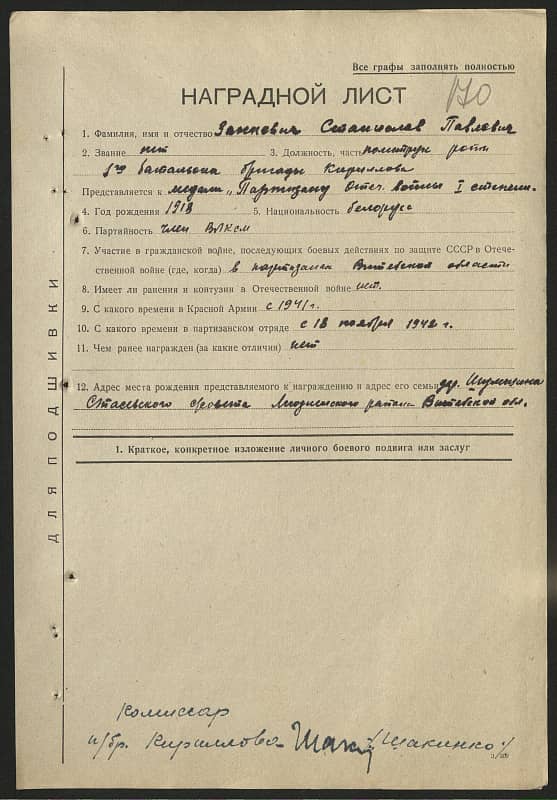 Все графы заполнять полностью
170
НАГРАДНОЙ ЛИСТ
1. Фамилия, имя и отчество Занкович Станислав Павлович
2. Звание нет 3. Должность, часть политрук роты
батальона бригады Кириллова
Представляется к медали „Партизану Отеч. войны I степени.
4. Год рождения 1918 5. Национальность белорус
6. Партийность член ВЛКСМ
7. Участие в гражданской войне, последующих боевых действиях по защите СССР в Отече-
ственной войне (где, когда) в партизанах Витебской области
8. Имеет ли ранения и контузии в Отечественной войне нет.
9. С какого времени в Красной Армии с 1941 г.
10. С какого времени в партизанском отряде с 18 ноября 1942 г.
11. Чем ранее награжден (за какие отличия) нет
12. Адрес места рождения представляемого к награждению и адрес его семьи дер.
с/совета Лиозненского района Витебской обл.
1. Краткое, конкретное изложение личного боевого подвига или заслуг
ДЛЯ ПОДШИВКИ
Комиссар
п/бр. Кириллова /Шакинко/